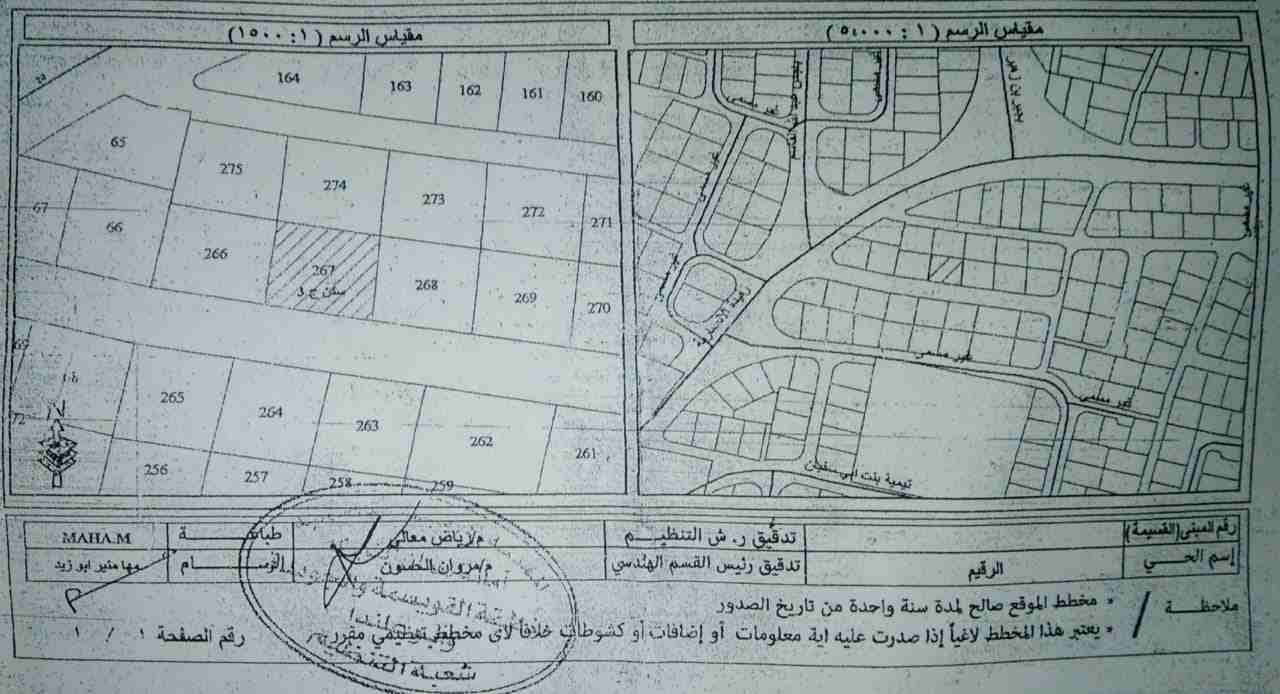 مقياس الرسم ( ١ : ٥٠٠٠ )
غير مسمى
غير مسمى
غير مسمى
غير مسمى
غير مسمى
غير مسمى
غير مسمى
رفيدة الأسلمية
مقياس الرسم ( ١ : ١٥٠٠ )
164 163 162 161 160
65 275 274 273 272 271
67 66 266 267 268 269 270
سكن ج د
265 264 263 262 261
72 256 257 258 259
N
رقم المبنى (القسيمة)
تدقيق ر. ش التنظيم م/رياض معالي طباعة MAHA.M
إسم الحي الرقيم تدقيق رئيس القسم الهندسي م/مروان الحسون الرسام مها منير ابو زيد
ملاحظة
• مخطط الموقع صالح لمدة سنة واحدة من تاريخ الصدور
• يعتبر هذا المخطط لاغياً إذا صدرت عليه اية معلومات أو إضافات أو كشوطات خلافاً لأي مخطط تنظيمي مقرر
رقم الصفحة ١ / ١